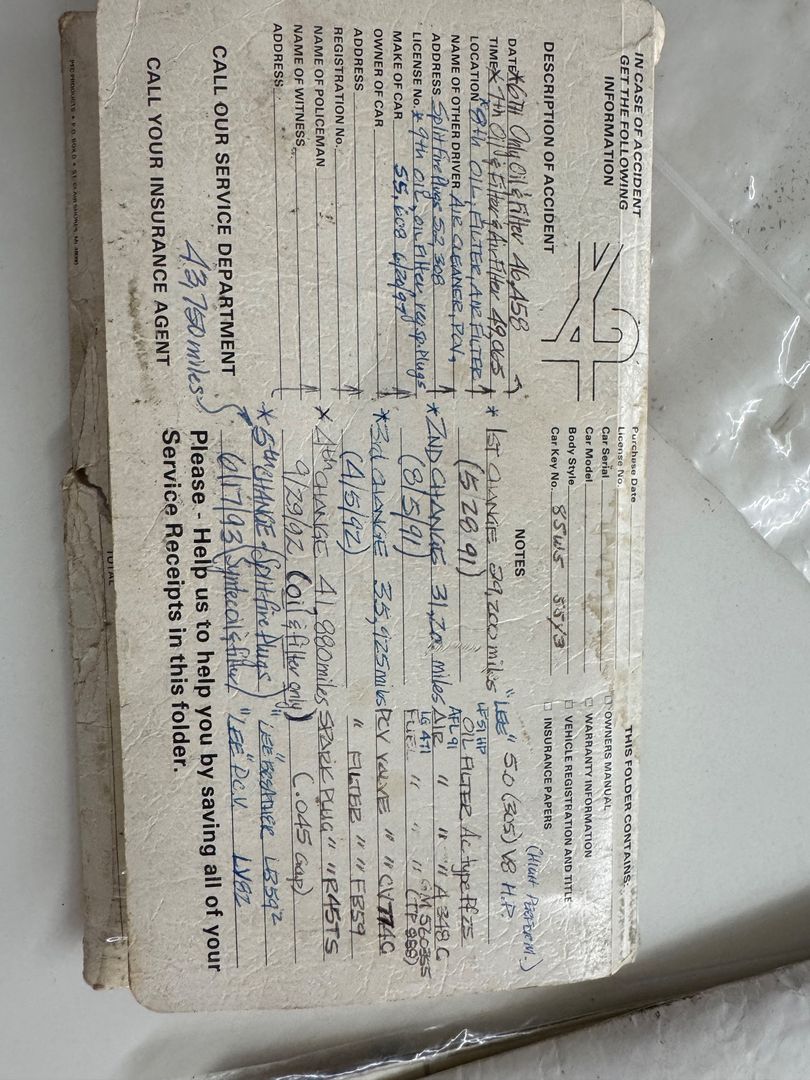 IN CASE OF ACCIDENT
GET THE FOLLOWING
INFORMATION
DESCRIPTION OF ACCIDENT
DATE *6TH Only Oil & Filter 46,458
TIME * 7th Oil & Filter & Air Filter 49,065
LOCATION *8th OIL, FILTER, AIR FILTER
NAME OF OTHER DRIVER AIR CLEANER, PCV,
ADDRESS Splitfire Plugs 52,308
LICENSE No. * 9th oil, oil filter, reg sp. plugs
MAKE OF CAR 55,608 6/20/97
OWNER OF CAR
ADDRESS
REGISTRATION No.
NAME OF POLICEMAN
NAME OF WITNESS
ADDRESS
CALL OUR SERVICE DEPARTMENT
43,750 miles
CALL YOUR INSURANCE AGENT
Purchase Date
License No.
Car Serial
Car Model
Body Style
Car Key No. 85W5 55Y3
THIS FOLDER CONTAINS:
OWNERS MANUAL
WARRANTY INFORMATION
VEHICLE REGISTRATION AND TITLE
INSURANCE PAPERS
NOTES
(HIGH PERFORM.)
"LEE" 5.0 (305) V8 H.P.
* 1ST CHANGE 29,200 miles LF51HP OIL FILTER AC type PF25
(5 28 91) AFL 91
* 2ND CHANGE 31,200 miles AIR " " A348C
(8/5/91) LG 471 FUEL " " " GM 560355 (TP 988)
*3rd CHANGE 35,925 miles PCV VALVE " " CV774C
(4/5/92) " FILTER " " FB59
* 4th CHANGE 41,880 miles SPARK PLUG " " R45TS
9/29/92 (oil & filter only) (.045 Gap)
* 5th CHANGE (Splitfire Plugs) "LEE" BREATHER LB592
6/17/93 (Syntec oil & filter) "LEE" P.C.V LV82
Please - Help us to help you by saving all of your
Service Receipts in this folder.
TOTAL